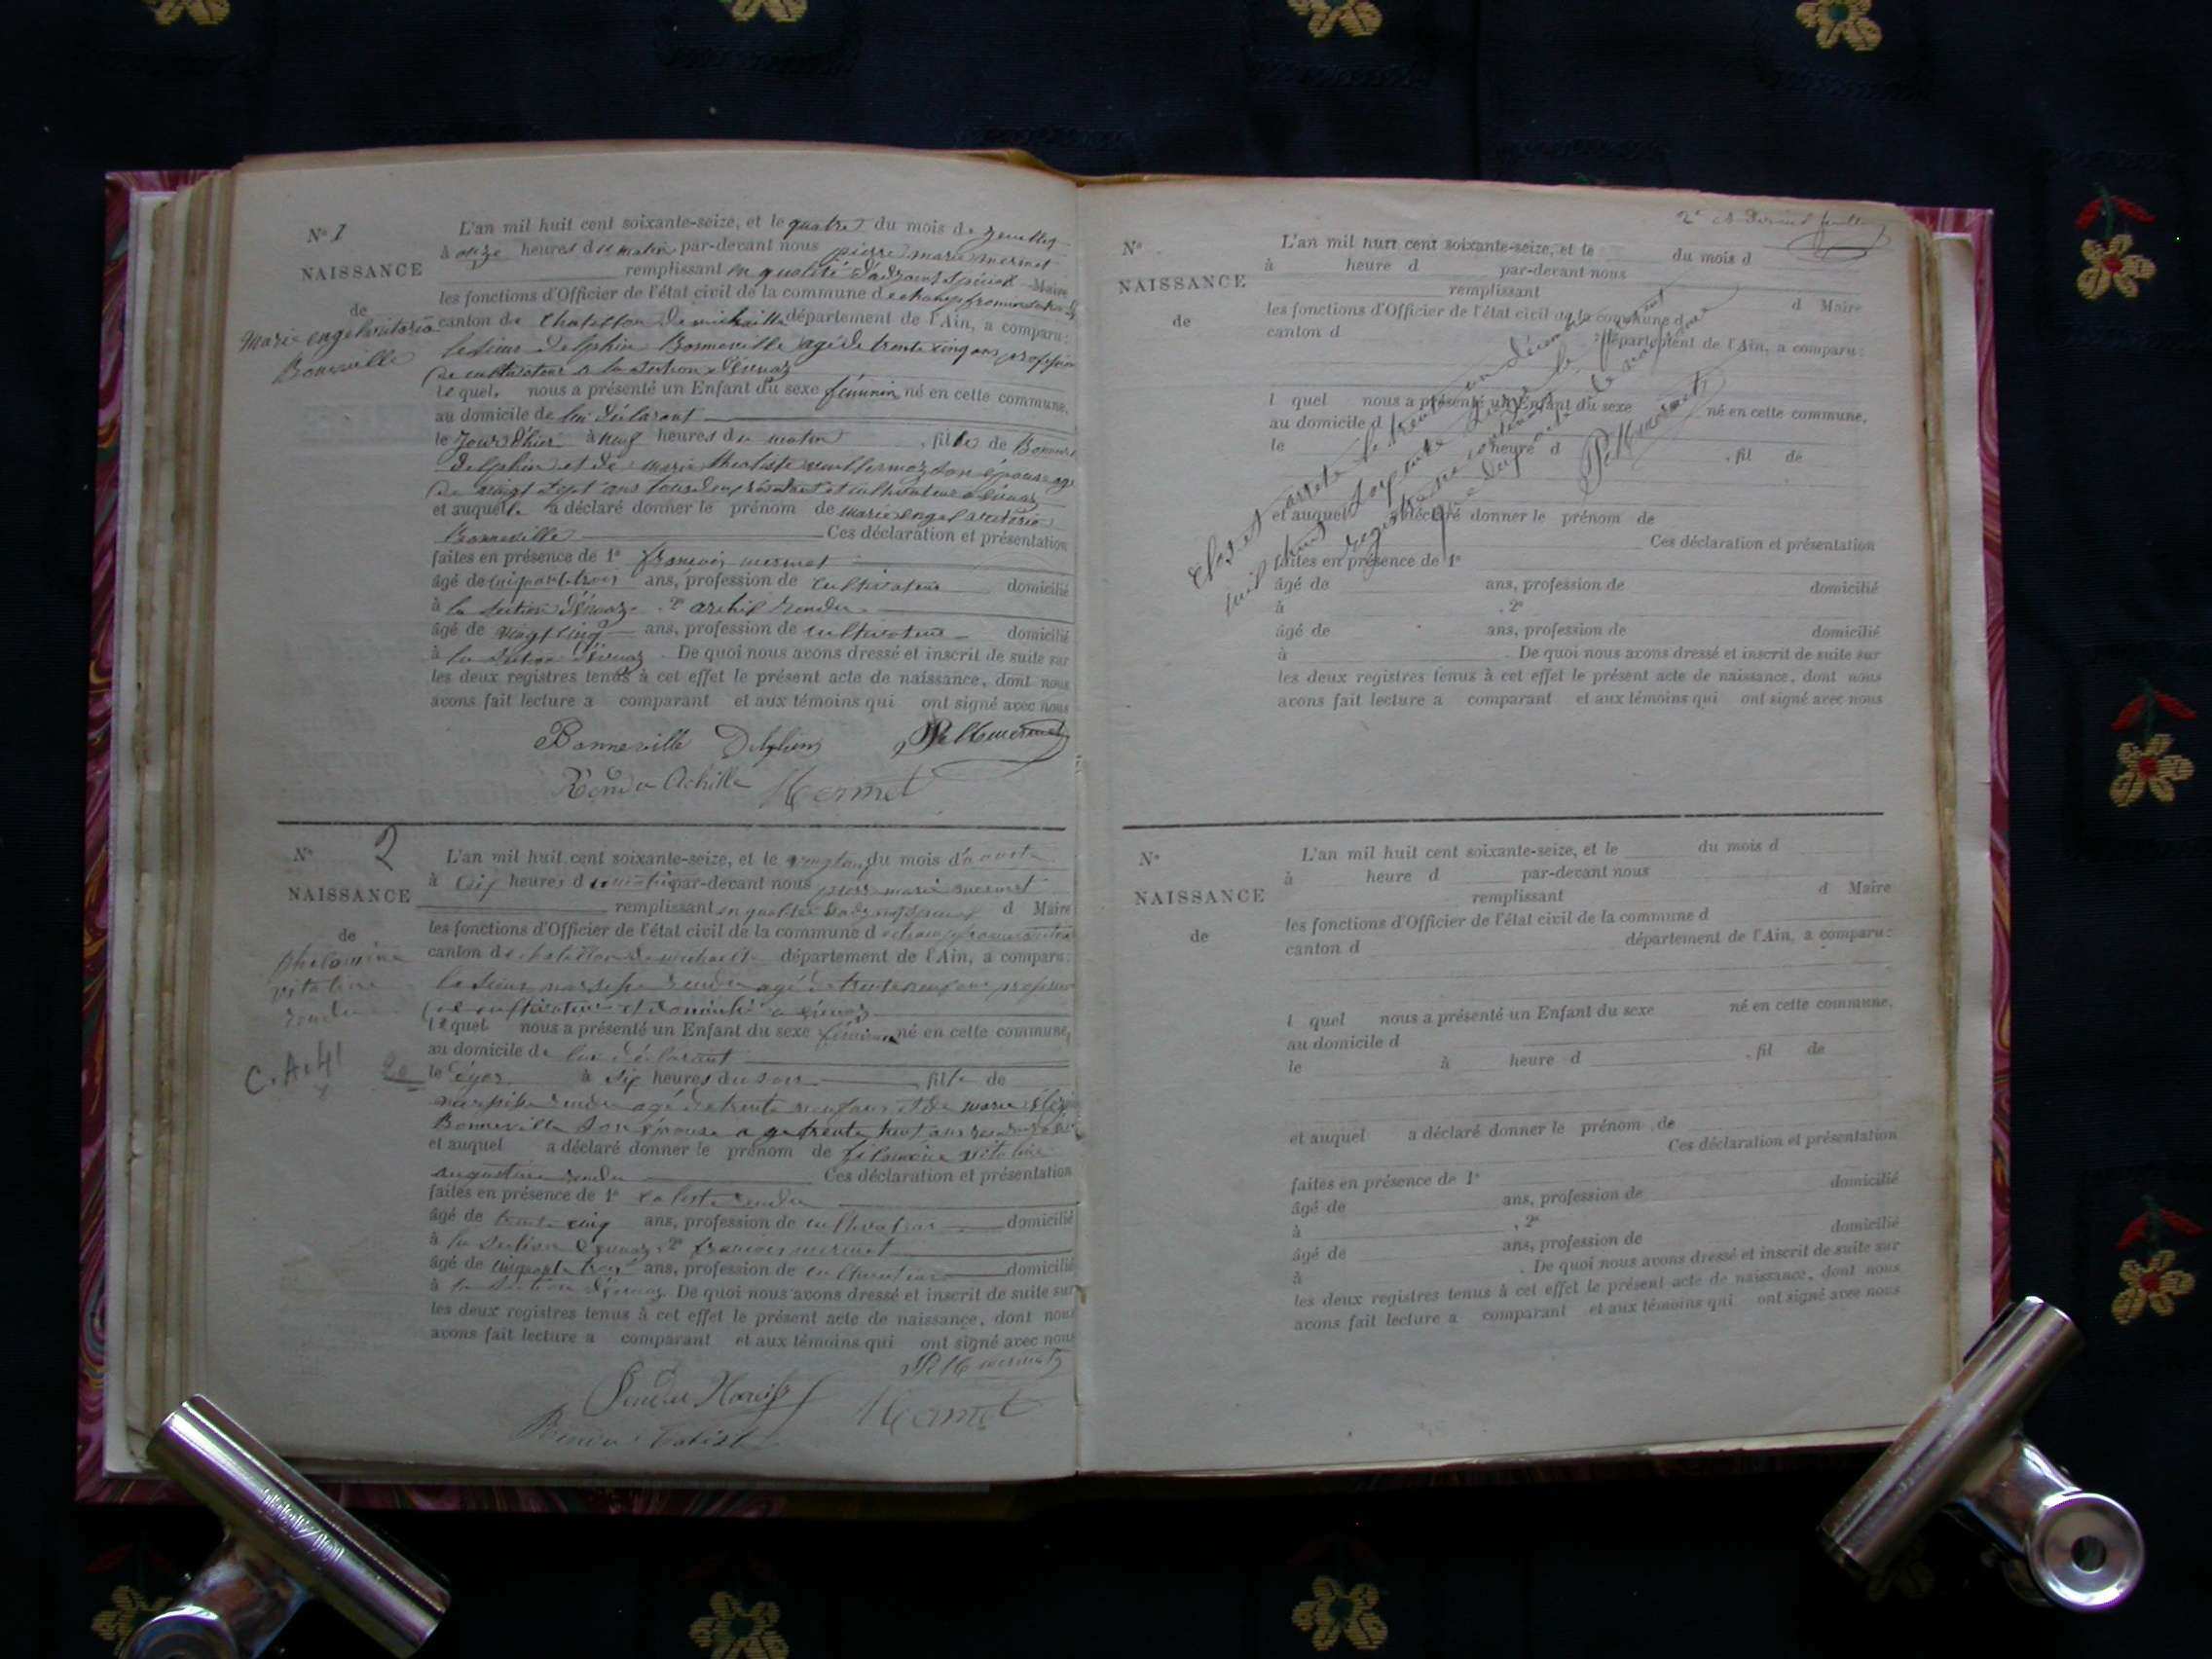 Nº 1
NAISSANCE
de
Marie engel victoria
Bonneville
L'an mil huit cent soixante-seize, et le quatre du mois de
à onze heures du matin par-devant nous pierre marie mermet
remplissant en qualité d'adjoint spécial Maire
les fonctions d'Officier de l'état civil de la commune de champfromier
canton de Chatillon de michaille département de l'Ain, a comparu:
le sieur delphin Bonneville agé de trente cinq ans profession
de cultivateur à la section d'évuaz
lequel nous a présenté un Enfant du sexe féminin né en cette commune,
au domicile de lui déclarant
le jour d'hier à neuf heures du matin, fille de
delphin et de marie son épouse agé
de vingt sept ans cultivateur à évuaz
et auquel a déclaré donner le prénom de marie engel victoria
Bonneville Ces déclaration et présentation
faites en présence de 1º francois mermet
âgé de cinquante trois ans, profession de cultivateur domicilié
à la section d'évuaz. 2º rendu
âgé de vingt cinq ans, profession de cultivateur domicilié
à la section d'évuaz. De quoi nous avons dressé et inscrit de suite sur
les deux registres tenus à cet effet le présent acte de naissance, dont nous
avons fait lecture a comparant et aux témoins qui ont signé avec nous
Bonneville Delphin
Rendu Achille Mermet
Nº 2
NAISSANCE
de
philomine
vitaline
rendu
C.A.41
L'an mil huit cent soixante-seize, et le du mois d'aoust
à heures du matin par-devant nous pierre marie mermet
remplissant en qualité d Maire
les fonctions d'Officier de l'état civil de la commune d
canton de chatillon de michaille département de l'Ain, a comparu:
le sieur rendu agé de trente neuf ans profession
de cultivateur et domicilié à évuaz
lequel nous a présenté un Enfant du sexe féminin né en cette commune,
au domicile de lui déclarant
le à six heures du soir, fille de
rendu agé de trente neuf ans et de marie
Bonneville son épouse agé trente huit ans
et auquel a déclaré donner le prénom de vitaline
augustine rendu Ces déclaration et présentation
faites en présence de 1º rendu
âgé de trente cinq ans, profession de cultivateur domicilié
à la section d'évuaz. 2º francois mermet
âgé de cinquante trois ans, profession de cultivateur domicilié
à la section d'évuaz. De quoi nous avons dressé et inscrit de suite sur
les deux registres tenus à cet effet le présent acte de naissance, dont nous
avons fait lecture a comparant et aux témoins qui ont signé avec nous
Mermet
Rendu
2e et dernier feuillet
Nº
NAISSANCE
de
L'an mil huit cent soixante-seize, et le du mois d
à heure d par-devant nous
remplissant d Maire
les fonctions d'Officier de l'état civil de la commune d
canton d département de l'Ain, a comparu:
l quel nous a présenté un Enfant du sexe né en cette commune,
au domicile d
le heure d, fil de
et auquel a déclaré donner le prénom de
Ces déclaration et présentation
faites en présence de 1º
âgé de ans, profession de domicilié
à . 2º
âgé de ans, profession de domicilié
à . De quoi nous avons dressé et inscrit de suite sur
les deux registres tenus à cet effet le présent acte de naissance, dont nous
avons fait lecture a comparant et aux témoins qui ont signé avec nous
Clos et arrêté le trente un décembre
mil huit cent soixante seize le présent
registre ne contenant
que deux actes de naissance
Nº
NAISSANCE
de
L'an mil huit cent soixante-seize, et le du mois d
à heure d par-devant nous
remplissant d Maire
les fonctions d'Officier de l'état civil de la commune d
canton d département de l'Ain, a comparu:
l quel nous a présenté un Enfant du sexe né en cette commune,
au domicile d
le à heure d, fil de
et auquel a déclaré donner le prénom de
Ces déclaration et présentation
faites en présence de 1º
âgé de ans, profession de domicilié
à , 2º
âgé de ans, profession de domicilié
à . De quoi nous avons dressé et inscrit de suite sur
les deux registres tenus à cet effet le présent acte de naissance, dont nous
avons fait lecture a comparant et aux témoins qui ont signé avec nous